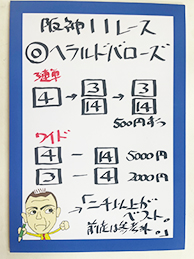 阪神11レース
◎ヘラルドバローズ
3連単
4 → 3 14 → 3 14
500円ずつ
ワイド
4 - 14 5000円
3 - 4 2000円
「ニ千以上が
ベスト。
前走は参考外。」